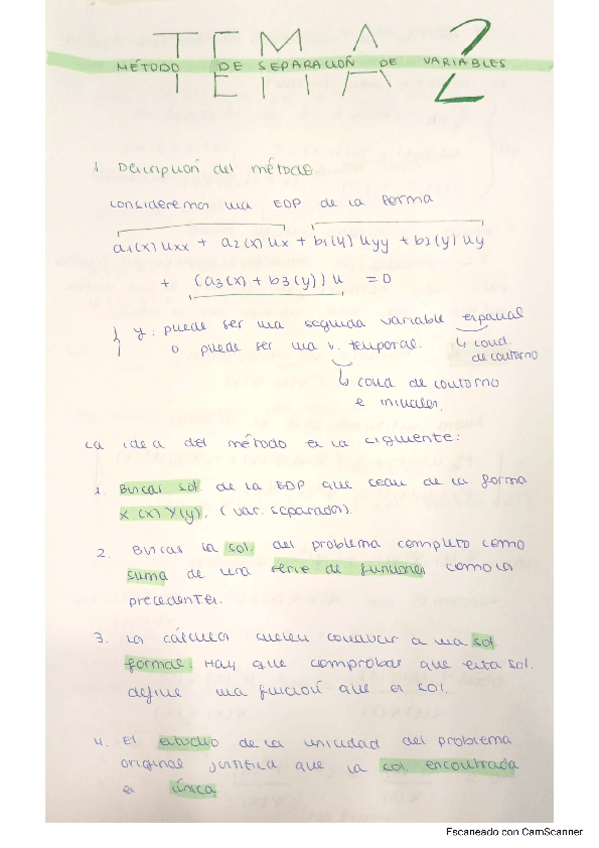 TEMA 2
MÉTODO DE SEPARACIÓN DE VARIABLES
1. Descripción del método.
Consideremos una EDP de la forma
a1(x) uxx + a2(x) ux + b1(y) uyy + b2(y) uy
+ (a3(x) + b3(y)) u = 0
y: puede ser una segunda variable espacial
o puede ser una v. temporal. ↳ cond.
de contorno
↳ cond de contorno
e iniciales.
La idea del método es la siguiente:
1. Buscar sol. de la EDP que sean de la forma
X(x) Y(y). (var. separadas).
2. Buscar la sol. del problema completo como
suma de una serie de funciones como la
precedentes.
3. Los cálculos suelen conducir a una sol.
formal. Hay que comprobar que esta sol.
define una función que es sol.
4. El estudio de la unicidad del problema
original justifica que la sol. encontrada
es única
Escaneado con CamScanner